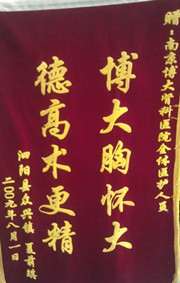 赠：南京博大肾科医院全体医护人员
博大胸怀大
德高术更精
泗阳县众兴镇
二〇〇九年八月一日